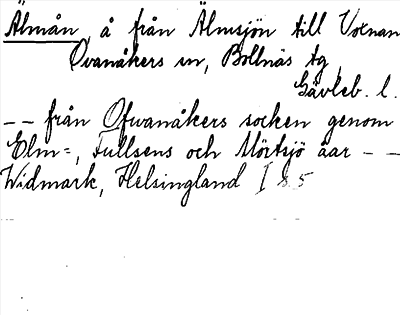 Älmån, å från Älmsjön till Voxnan
Ovanåkers sn, Bollnäs tg
Gävleb. l.
-- från Ofwanåkers socken genom
Elm=, Fullsens och Mörtsjö åar --
Widmark, Helsingland I s. 5